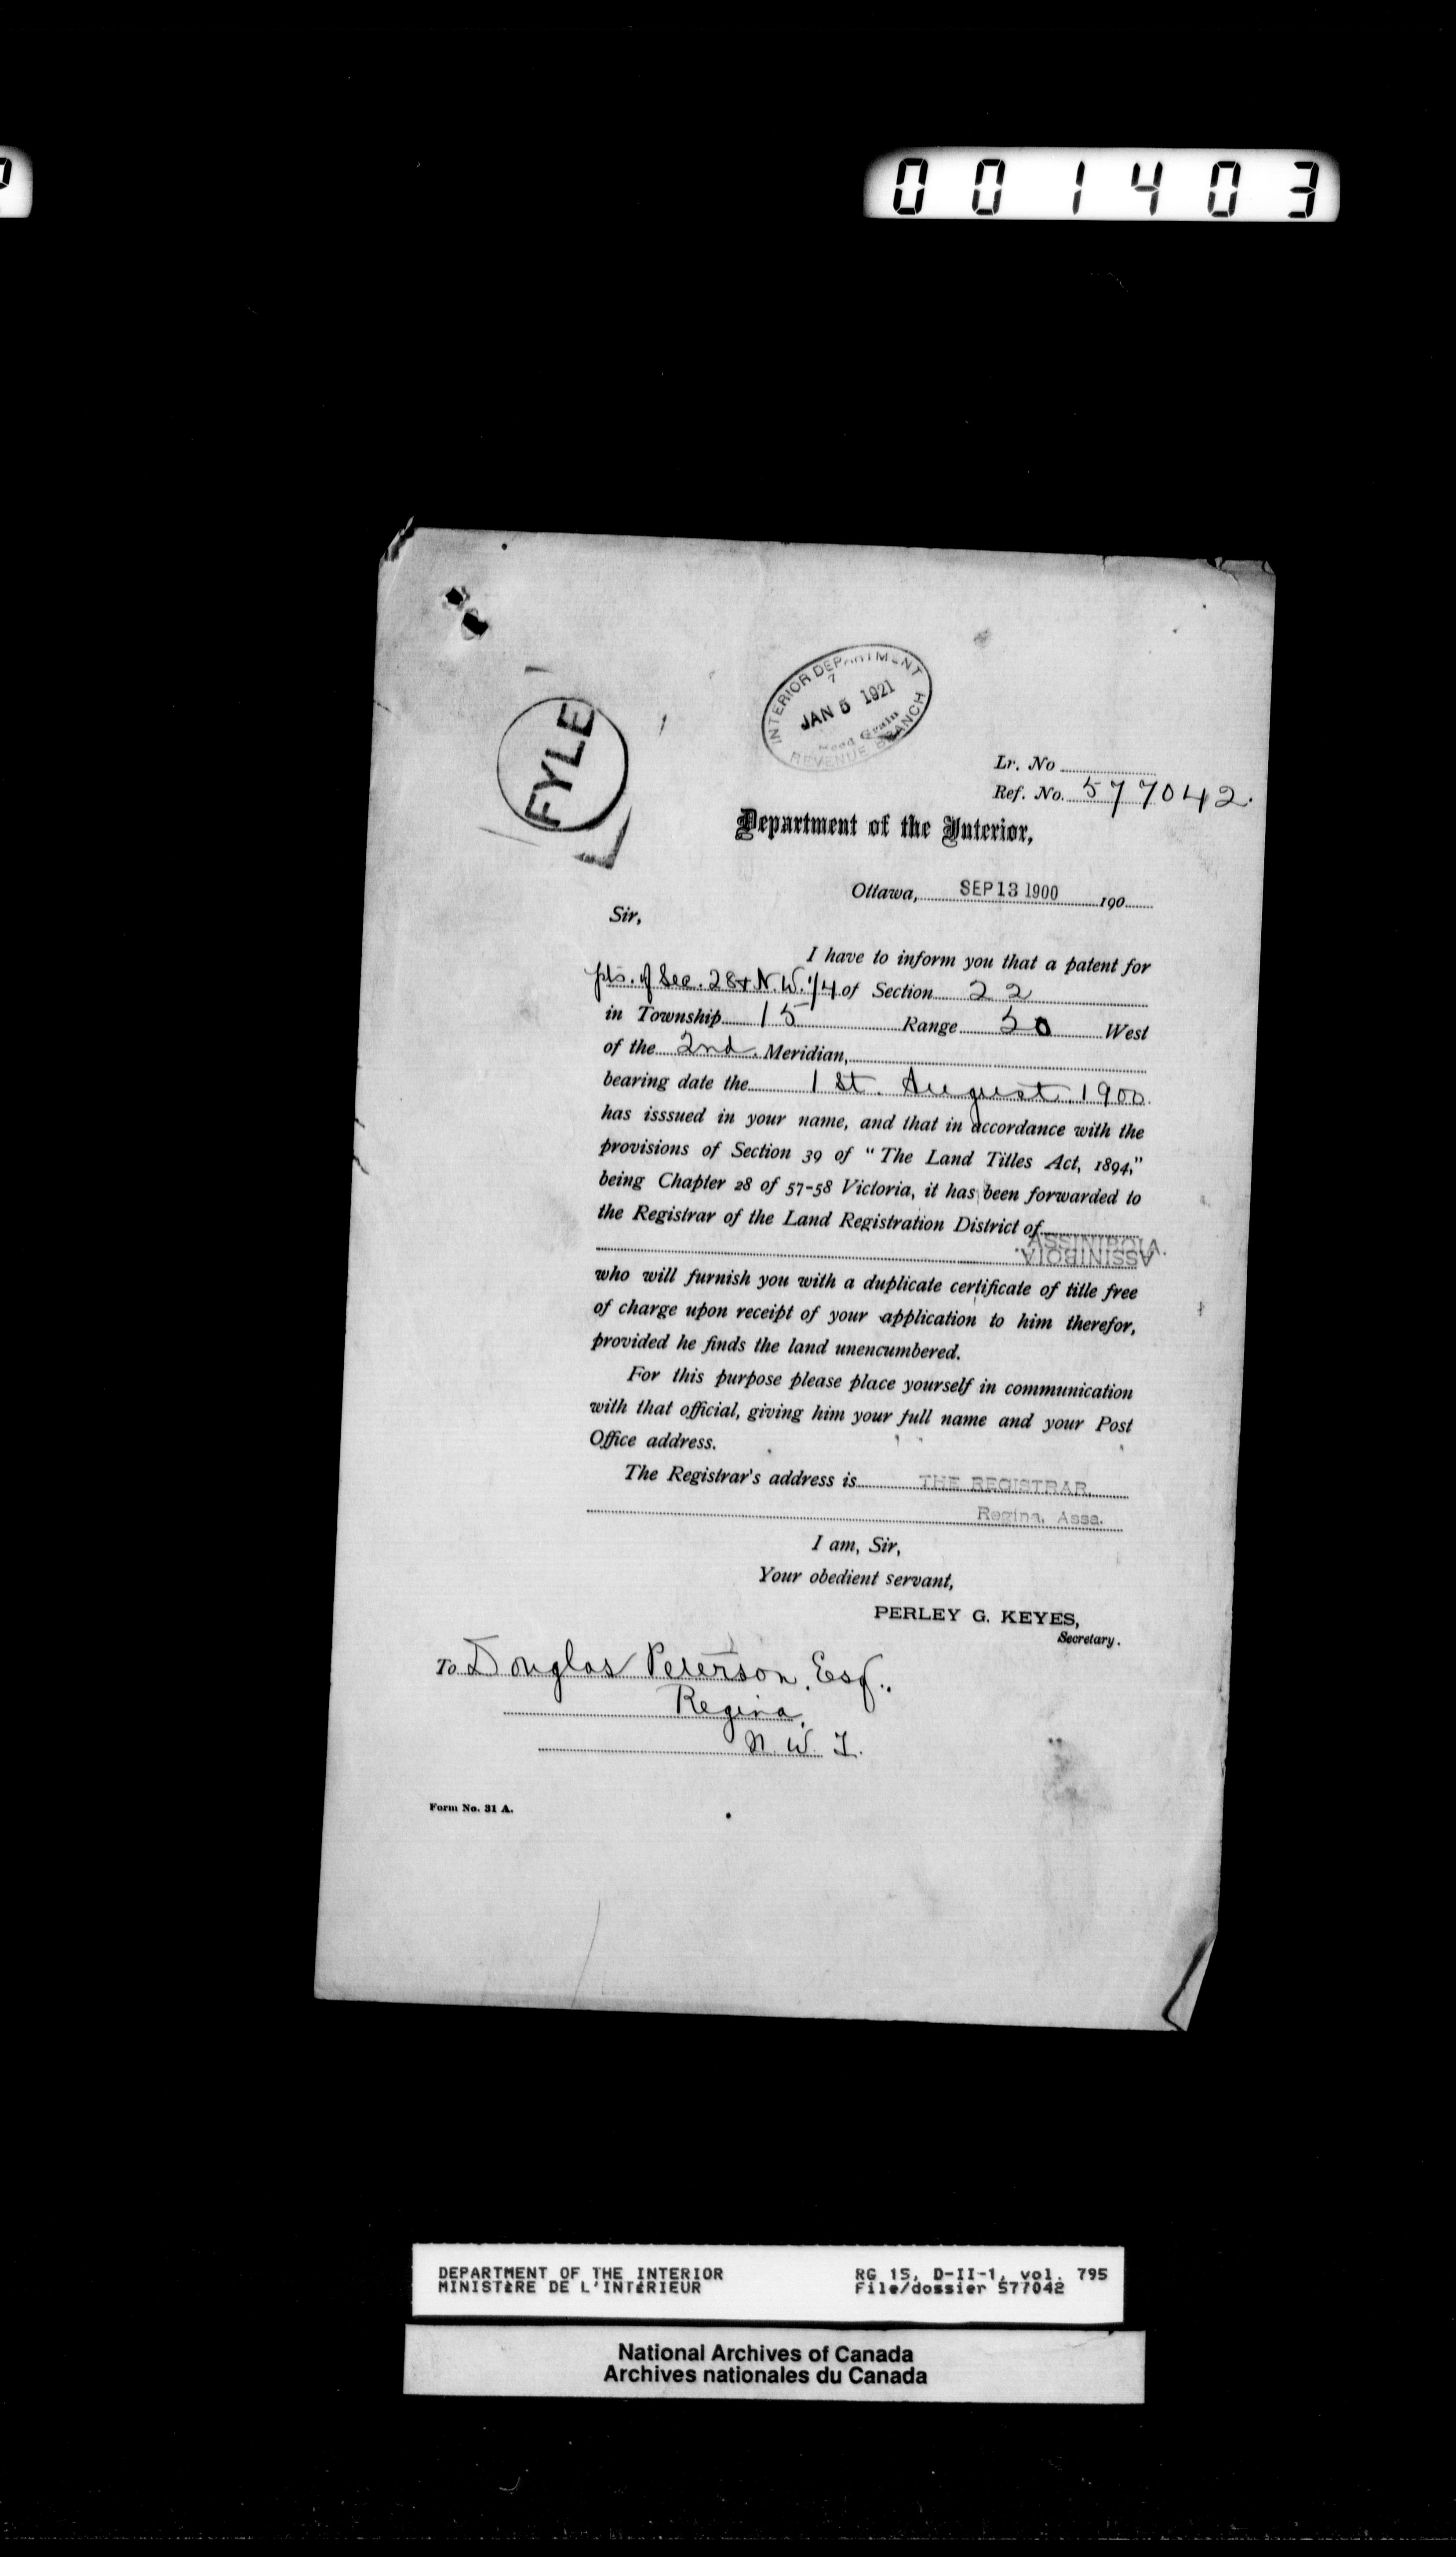 001403
INTERIOR DEPARTMENT
7
JAN 5 1921
Seed Grain
REVENUE BRANCH
FYLE
Lr. No
Ref. No. 577042.
Department of the Interior,
Ottawa, SEP 13 1900 190
Sir,
I have to inform you that a patent for
pts. of Sec. 28 & N.W. 1/4 of Section 22
in Township 15 Range 20 West
of the 2nd. Meridian,
bearing date the 1st. August, 1900.
has isssued in your name, and that in accordance with the
provisions of Section 39 of "The Land Titles Act, 1894,"
being Chapter 28 of 57-58 Victoria, it has been forwarded to
the Registrar of the Land Registration District of
ASSINIBOIA.
ASSINIBOIA.
who will furnish you with a duplicate certificate of title free
of charge upon receipt of your application to him therefor,
provided he finds the land unencumbered.
For this purpose please place yourself in communication
with that official, giving him your full name and your Post
Office address.
The Registrar's address is THE REGISTRAR,
Regina, Assa.
I am, Sir,
Your obedient servant,
PERLEY G. KEYES,
Secretary.
To Douglas Peterson, Esq.,
Regina,
N. W. T.
Form No. 31 A.
DEPARTMENT OF THE INTERIOR RG 15, D-II-1, vol. 795
MINISTÈRE DE L'INTÉRIEUR File/dossier 577042
National Archives of Canada
Archives nationales du Canada